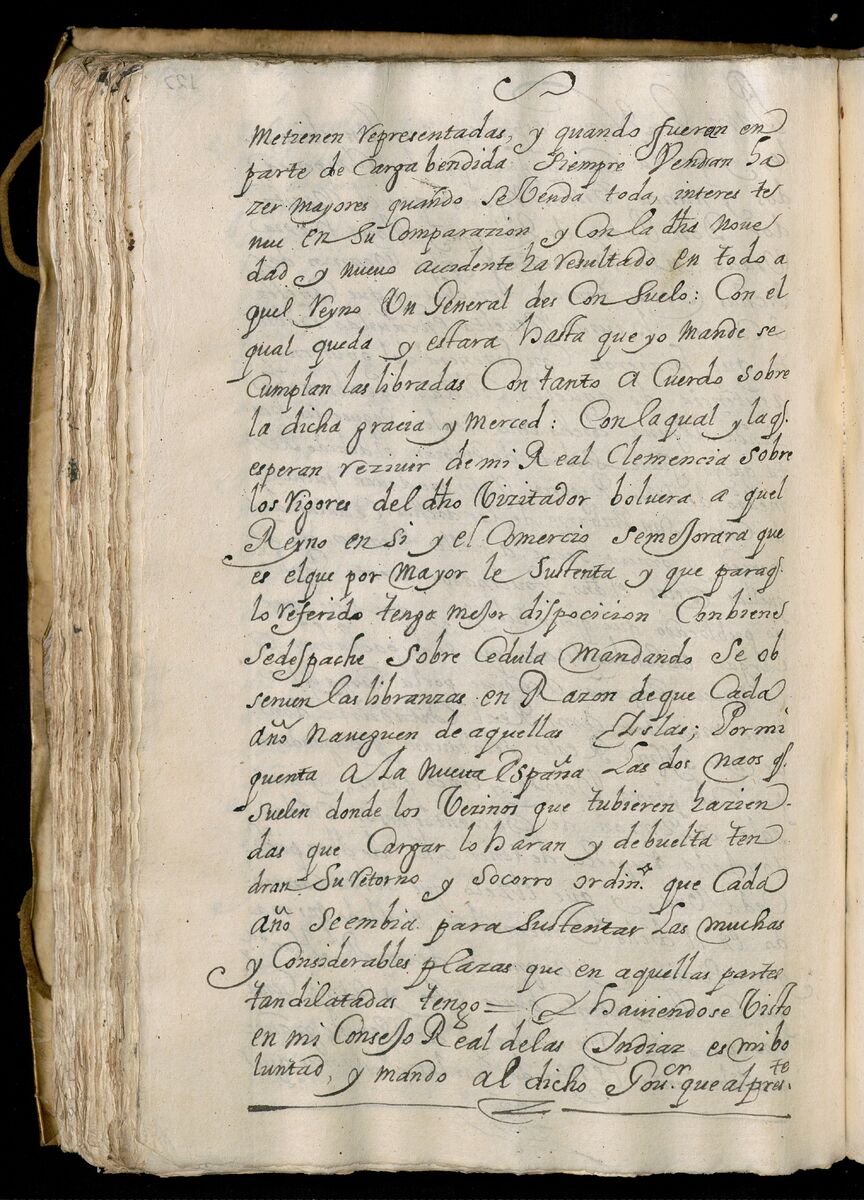 metienen representadas, y quando fueran en
parte de Carga bendida siempre Vendran ha
zer mayores quando se Venda toda, interes te
nue en su Comparazion, y Con la dha nove
dad y nuevo accidente ha resultado en todo a
quel reyno Un General des Con suelo: Con el
qual queda y estara hasta que yo mande se
Cumplan las libradas Con tanto a Cuerdo sobre
la dicha gracia y merced: Con la qual y la q.
esperan rezivir de mi Real Clemencia sobre
los Vigores del dho Vizitador boluera a quel
Reyno en si y el Comercio semejorara que
es elque por mayor le sustenta y que paraq.
lo referido tenga mejor dispocicion Conbiene
sedespache sobre Cedula mandando se ob
seruen las libranzas en Razon de que Cada
año naveguen de aquellas Islas; Por mi
quenta a la nueva España Las dos naos q.
suelen donde los Vezinos que tubieren hazien-
das que Cargar lo haran y de buelta ten
dran su retorno y socorro ordin.º que Cada
año se embia para sustentar Las muchas
y Considerables plazas que en aquellas partes
tan dilatadas tengo = Y haviendose Visto
en mi Consejo Real de las Indiaz es mi bo
luntad, y mando al dicho Gou.or que al pres.te